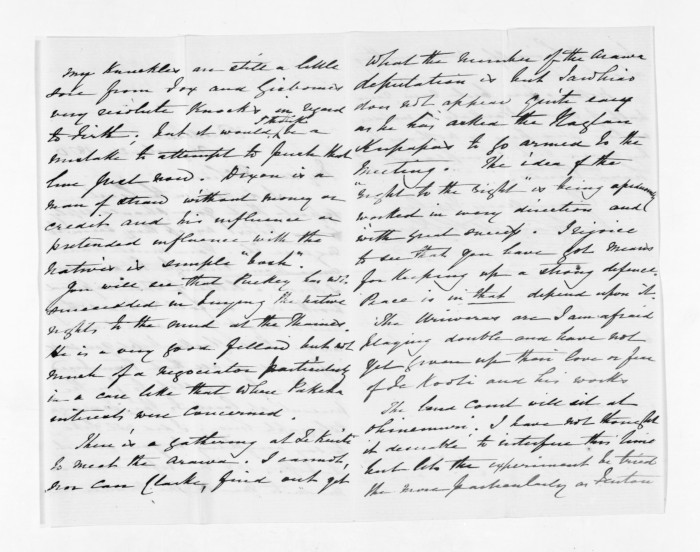 My Knuckles are still a little
sore from Fox and Gisborne's
very resolute Knocks in regard
to Firth; but it would, I think be a
mistake to attempt to push that
line just now. Dixon is a
man of straw without money or
credit and his influence or
pretended influence with the
natives is simple "bosh".
You will see that Puckey has not
succeeded in buying the native
rights to the mud at the Thames.
He is a very good fellow but not
much of a negociator particularly
in a case like that where Pakeha
interests were concerned.
There is a gathering at Te Kuiti
to meet the Arawa. I cannot,
nor can Clarke, find out yet
What the number of the Arawa
deputation is but Tawhiao
does not appear quite easy
as he has asked the Raglan
Kupapas to go armed to the
meeting. The idea of the
"right to the right" is being
worked in every direction and
with great energy. I rejoice
to see that you have got means
for keeping up a strong defence.
Peace is in that depend upon it.
The Uriweras are I am afraid
playing double and have not
yet given up their love or fear
of Te Kooti and his works
The land Court will sit at
Ohinemuri. I have not thought
it desirable to interfere this time
but let the experiment be tried
the more particularly as Fenton